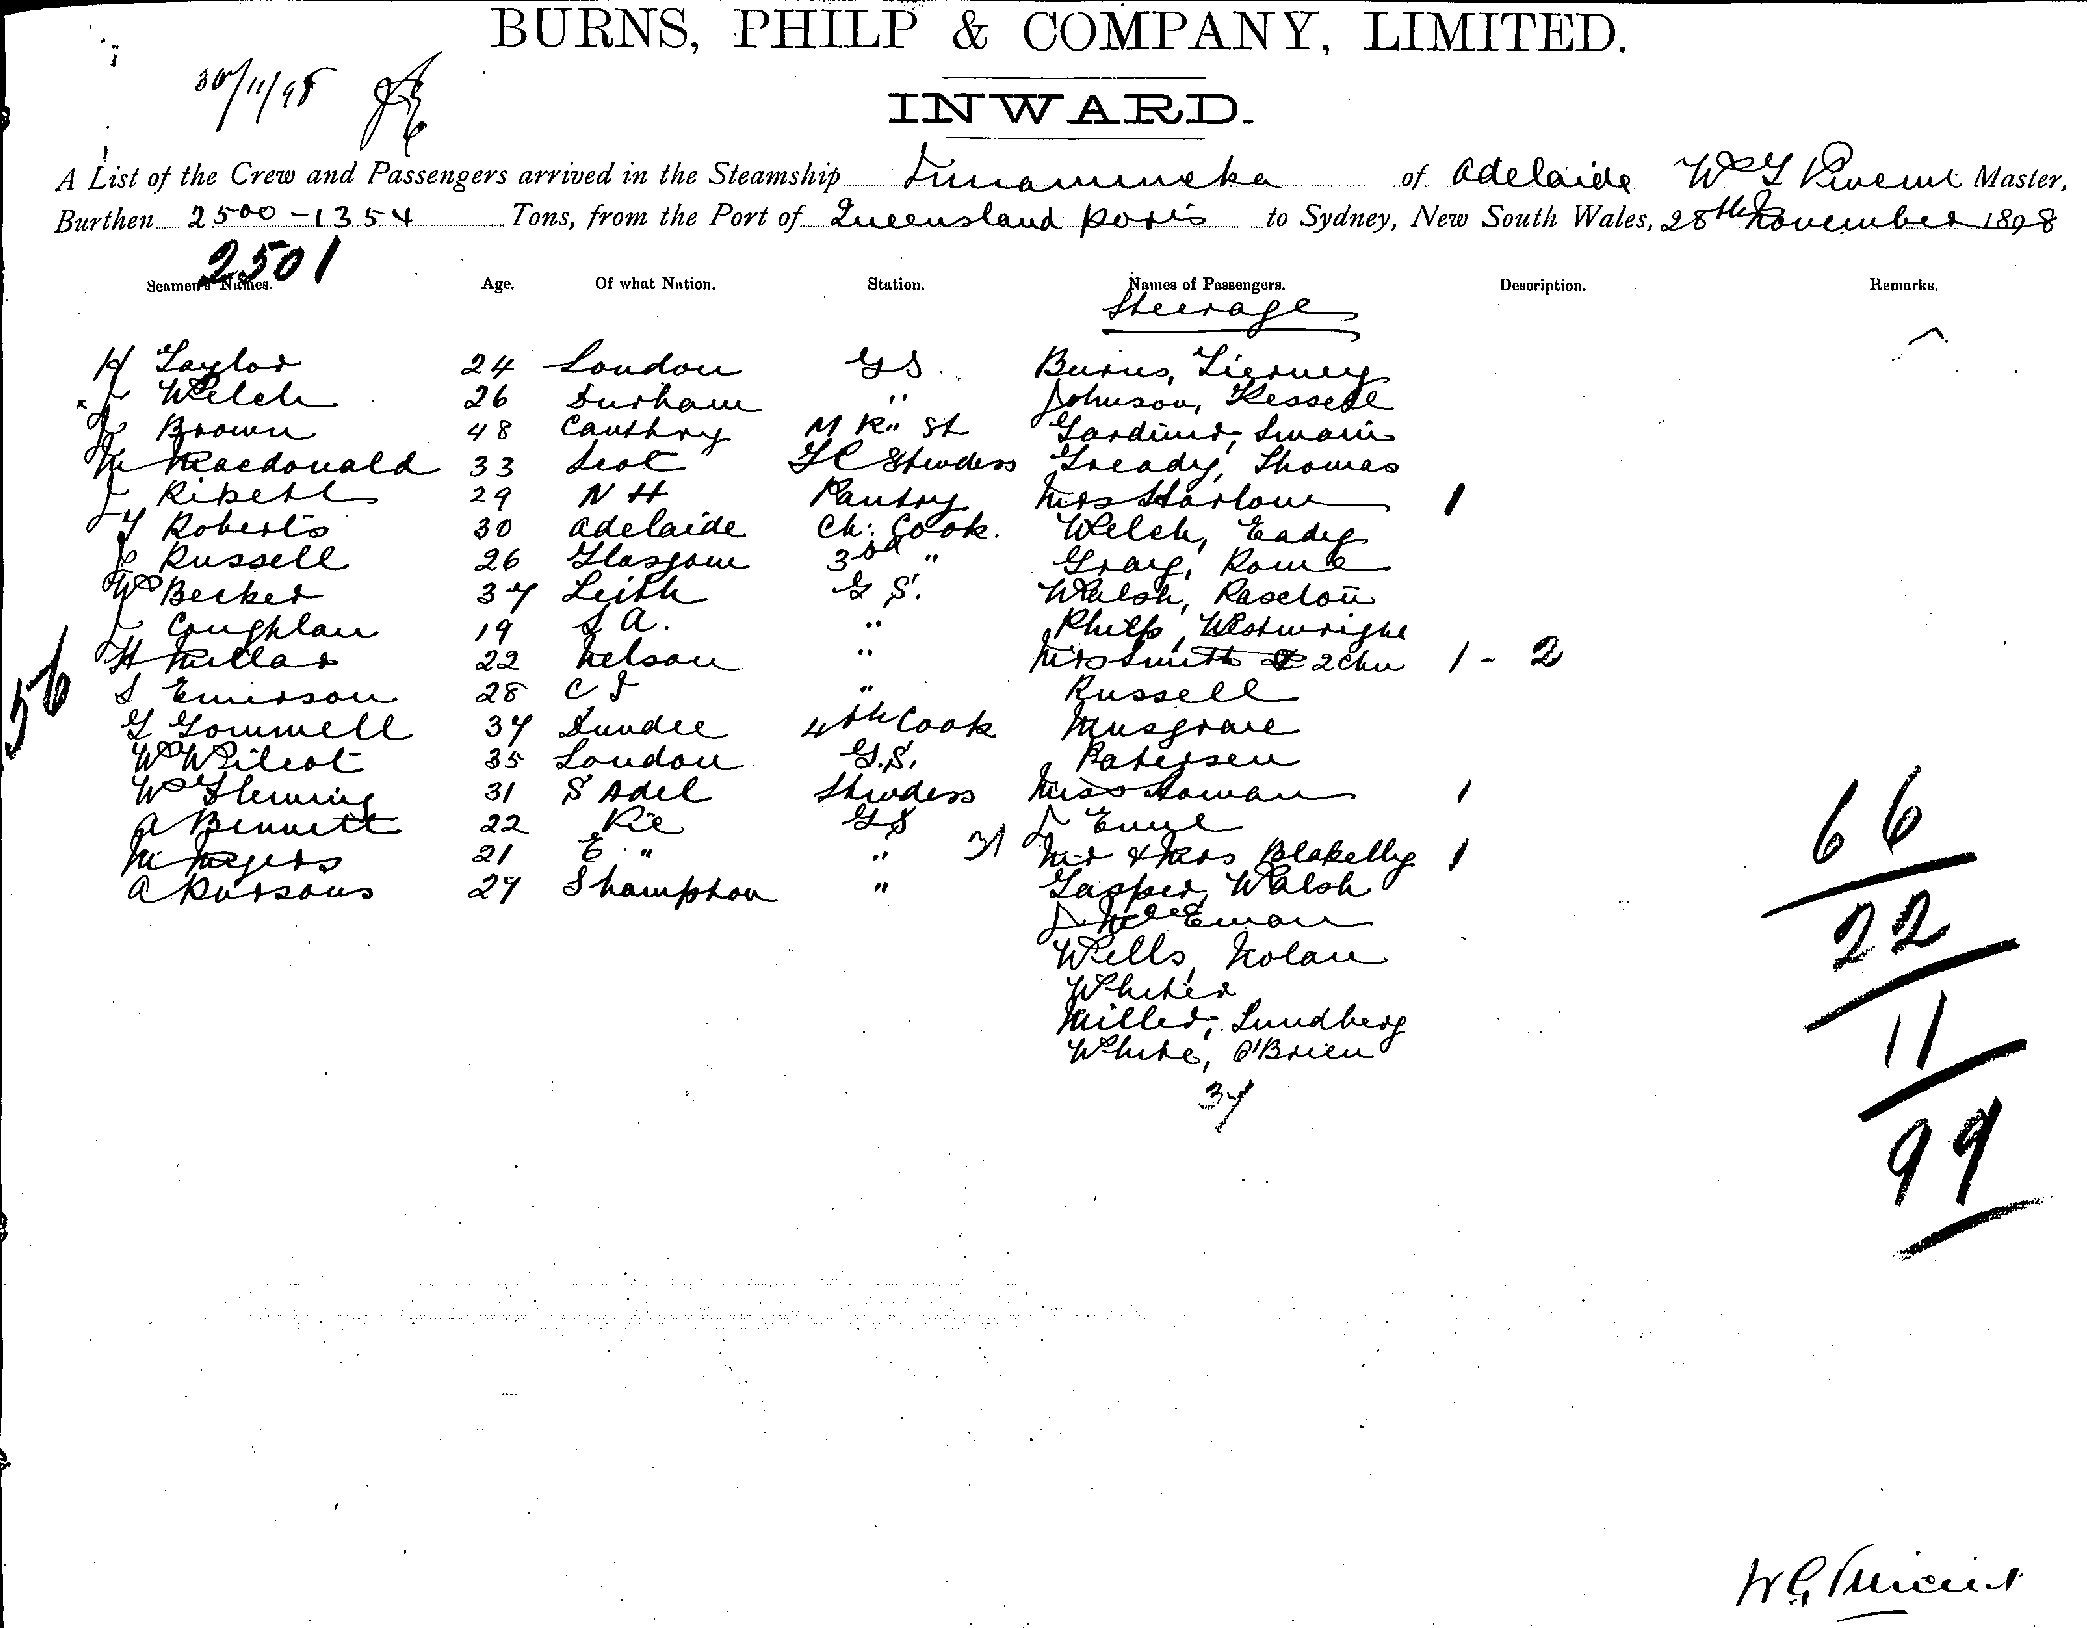 BURNS, PHILP & COMPANY, LIMITED.
30/11/98
INWARD.
A List of the Crew and Passengers arrived in the Steamship Innamincka of Adelaide Wm G Vincent Master,
Burthen 2500-1354 Tons, from the Port of Queensland ports to Sydney, New South Wales, 28th November 1898
2501
Seamen's Names. Age. Of what Nation. Station. Names of Passengers. Description. Remarks.
Steerage
H Taylor 24 London GS Burns, Tierney
J Welch 26 Durham " Johnson, Kessell
Brown 48 Cantbry M R" St Gardiner, Swain
Macdonald 33 Scot FC Stewdess Gready, Thomas
J Rikett 29 N H Pantry Mrs Harlow 1
Roberts 30 Adelaide Ch: Cook. Welch, Eady
J Russell 26 Glasgow 3rd " Gray, Rowe
Wm Becker 37 Leith G S. Walsh,
J Coughlan 19 S A. " Philp,
H Millar 22 Nelson " Mrs Smith & 2 Chn 1 - 2
S Emerson 28 C I " Russell
56
G Gommell 37 Dundee 4th Cook Musgrave
Wm Wilcot 35 London G.S. Patersen
Wm Fleming 31 S Adel Stewdess Miss Homan 1
A Bennett 22 Vic GS J
M Myers 21 E " " 31 Mr & Mrs Blakelly 1
A Parsons 27 Shampton " Gasper, Walsh
66
22
Wells, Nolan
11
Miller, Lundberg
White, O'Brien
37
99
W G Vincent